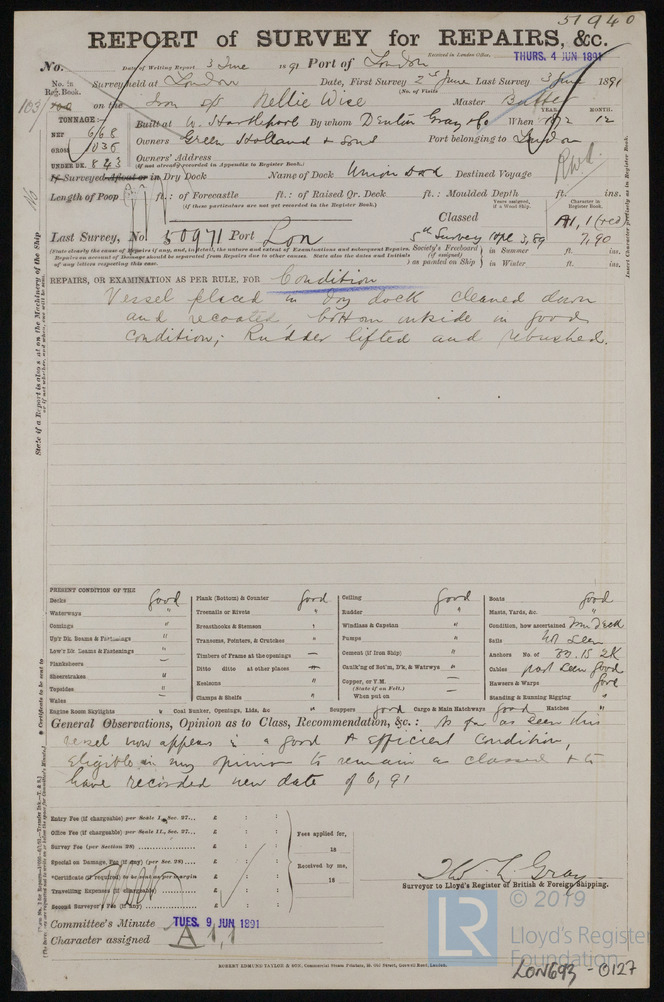 51940
REPORT of SURVEY for REPAIRS, &c.
Received in London Office, THURS. 4 JUN 1891
No. Date of Writing Report 3 June 1891 Port of London
No. in Reg. Book. Survey held at London Date, First Survey 2nd June Last Survey 3 June 1891
(No. of Visits
103 on the Iron s/s Nellie Wise Master
TONNAGE:— YEAR. MONTH.
NET 668 Built at W. Hartlepool By whom Denton Gray & Co When 12
GROSS 1035 Owners Green Holland & Sons Port belonging to London
UNDER DK. 843 Owners' Address
(If not already recorded in Appendix to Register Book.)
If Surveyed Afloat or in Dry Dock Name of Dock Union Dock Destined Voyage
Length of Poop ft.: of Forecastle ft.: of Raised Qr. Deck ft.: Moulded Depth ft. ins.
(If these particulars are not yet recorded in the Register Book.)
Years assigned, if a Wood Ship. Character in Register Book.
Classed A1,1 (red)
Last Survey, No. 50971 Port Lon 5th Survey 3,89 7,90
Society's Freeboard (if assigned) as painted on Ship in Summer ft. ins.
in Winter ft. ins.
(State clearly the cause of Repairs if any, and, in detail, the nature and extent of Examinations and subsequent Repairs. Repairs on account of Damage should be separated from Repairs due to other causes. State also the dates and Initials of any letters respecting this case.
Insert Character precisely as in Register Book.
State if a Report is also sent on the Machinery of the Ship
No
REPAIRS, OR EXAMINATION AS PER RULE, FOR Condition
Vessel placed in dry dock cleaned down
and recoated, bottom outside in good
condition; Rudder lifted and rebushed.
PRESENT CONDITION OF THE
Decks good
Waterways "
Comings "
Up'r Dk. Beams & Fastenings "
Low'r Dk. Beams & Fastenings "
Planksheers —
Sheerstrakes —
Topsides —
Wales —
Engine Room Skylights "
Plank (Bottom) & Counter good
Treenails or Rivets "
Breasthooks & Stemson "
Transoms, Pointers, & Crutches "
Timbers of Frame at the openings —
Ditto ditto at other places —
Keelsons "
Clamps & Shelfs —
Coal Bunker, Openings, Lids, &c "
Ceiling good
Rudder "
Windlass & Capstan "
Pumps "
Cement (if Iron Ship) "
Caulk'ng of Bot'm, D'k, & Watrwys "
Copper, or Y.M. —
(State if on Felt.) —
When put on
Scuppers good Cargo & Main Hatchways good Hatches "
Boats good
Masts, Yards, &c. "
Condition, how ascertained Fm. Deck
Sails not seen
Anchors No. of 3B. 1S. 2K
Cables part seen good
Hawsers & Warps good
Standing & Running Rigging "
General Observations, Opinion as to Class, Recommendation, &c.: As far as seen this
vessel now appears in a good & efficient condition,
eligible in my opinion to remain as classed & to
have recorded new date of 6,91
Entry Fee (if chargeable) per Scale I., Sec. 27... £ : :
Office Fee (if chargeable) per Scale II., Sec. 27... £ : :
Survey Fee (per Section 28) £ : :
Special or Damage, Fee (if any) (per Sec. 28) £ : :
Certificate (if required) to be sent as per margin £ : :
Travelling Expenses (if chargeable) £ : :
Second Surveyor's Fee (if any) £ : :
Fees applied for,
18
Received by me,
18
Thos. L. Gray
Surveyor to Lloyd's Register of British & Foreign Shipping.
Committee's Minute TUES. 9 JUN 1891
Character assigned A 1,1
© 2019
LR
Lloyd's Register
Foundation
ROBERT EDMUND TAYLOR & SON, Commercial Steam Printers, 19, Old Street, Goswell Road, London.
LON693-0127